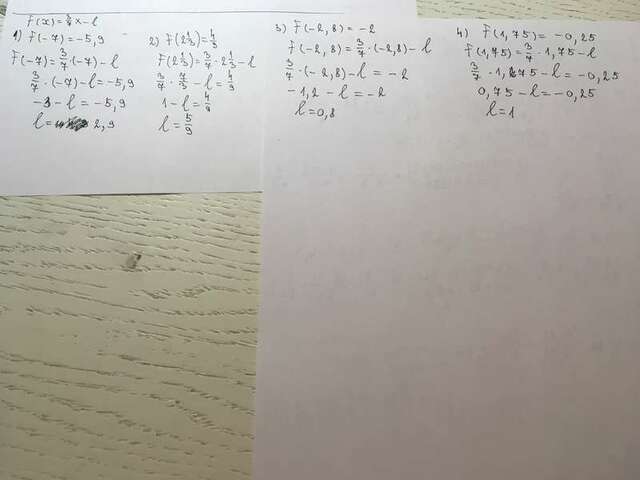 f(x)=3/7 x - l
1) f(-7)=-5,9
f(-7)=3/7·(-7)-l
3/7·(-7)-l=-5,9
-3-l=-5,9
l=2,9
2) f(2 1/3)=4/9
f(2 1/3)=3/7·2 1/3-l
3/7·7/3-l=4/9
1-l=4/9
l=5/9
3) f(-2,8)=-2
f(-2,8)=3/7·(-2,8)-l
3/7·(-2,8)-l=-2
-1,2-l=-2
l=0,8
4) f(1,75)=-0,25
f(1,75)=3/7·1,75-l
3/7·1,75-l=-0,25
0,75-l=-0,25
l=1